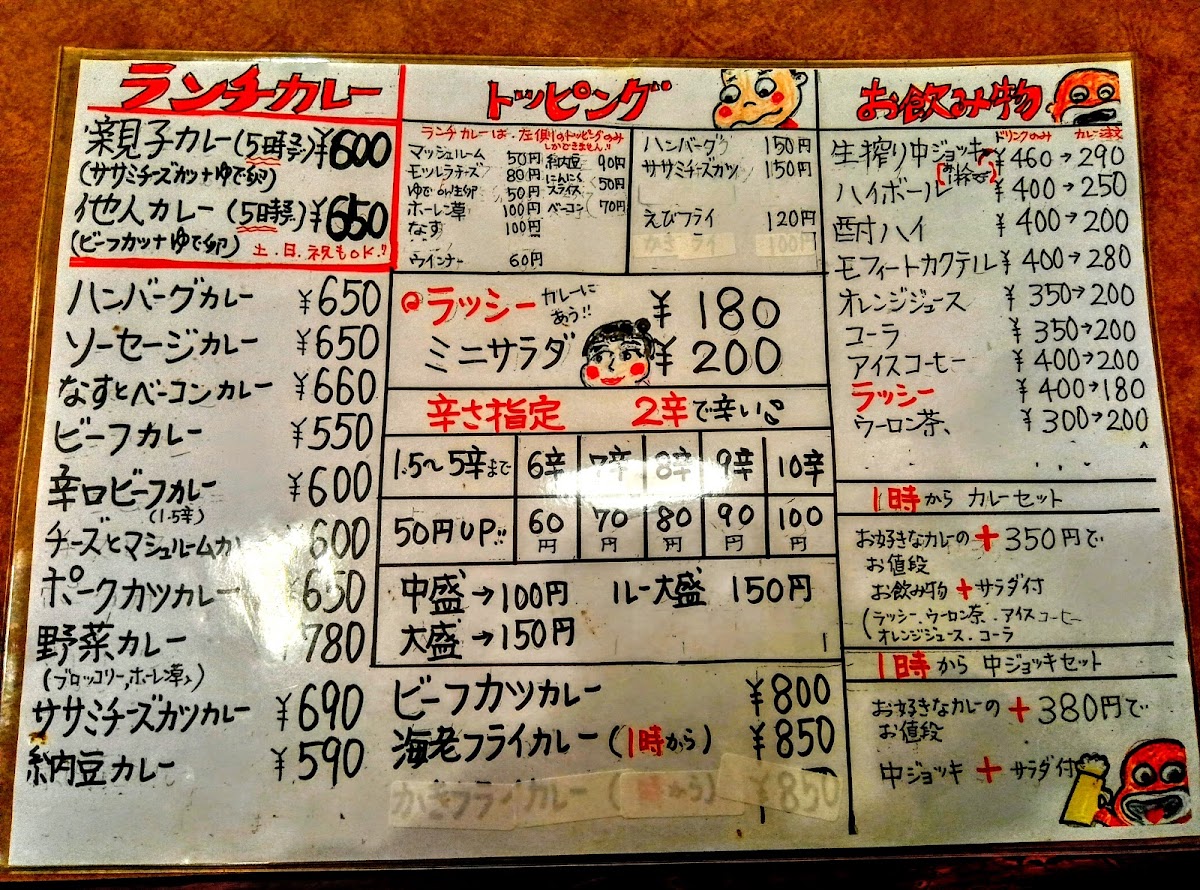 ランチカレー
親子カレー(5時まで)¥600
(ササミチーズカツ+ゆで卵)
他人カレー(5時まで)¥650
(ビーフカツ+ゆで卵) 土.日.祝もOK!!
ハンバーグカレー ¥650
ソーセージカレー ¥650
なすとベーコンカレー ¥660
ビーフカレー ¥550
辛口ビーフカレー ¥600
(1.5辛)
チーズとマシュルームカ 600
ポークカツカレー 650
野菜カレー 780
(ブロッコリー,ホーレン草)
ササミチーズカツカレー ¥690
納豆カレー ¥590
トッピング
ランチカレーは、左側のトッピングのみ
しかできません!!
マッシュルーム 50円
モツレラチーズ 80円
ゆで or 生卵 50円
ホーレン草 100円
なす 100円
ウインナー 60円
納豆 90円
にんにく
スライス 50円
ベーコン 70円
ハンバーグ 150円
ササミチーズカツ 150円
えびフライ 120円
かきフライ 100円
ラッシー カレーに ¥180
あう!!
ミニサラダ ¥200
辛さ指定 2辛で辛い
1.5〜5辛まで 6辛 7辛 8辛 9辛 10辛
50円UP!! 60円 70円 80円 90円 100円
中盛→100円 ルー大盛 150円
大盛→150円
ビーフカツカレー ¥800
海老フライカレー(1時から) ¥850
かきフライカレー(1時から) ¥850
お飲み物
ドリンクのみ カレー注文
生搾り中ジョッキ ¥460→290
ハイボール ¥400→250
酎ハイ ¥400→200
モフィートカクテル ¥400→280
オレンジジュース ¥350→200
コーラ ¥350→200
アイスコーヒー ¥400→200
ラッシー ¥400→180
ウーロン茶、 ¥300→200
1時から カレーセット
お好きなカレーの+350円で
お値段
お飲み物+サラダ付
(ラッシー.ウーロン茶.アイスコーヒー
オレンジジュース.コーラ
1時から 中ジョッキセット
お好きなカレーの+380円で
お値段
中ジョッキ+サラダ付